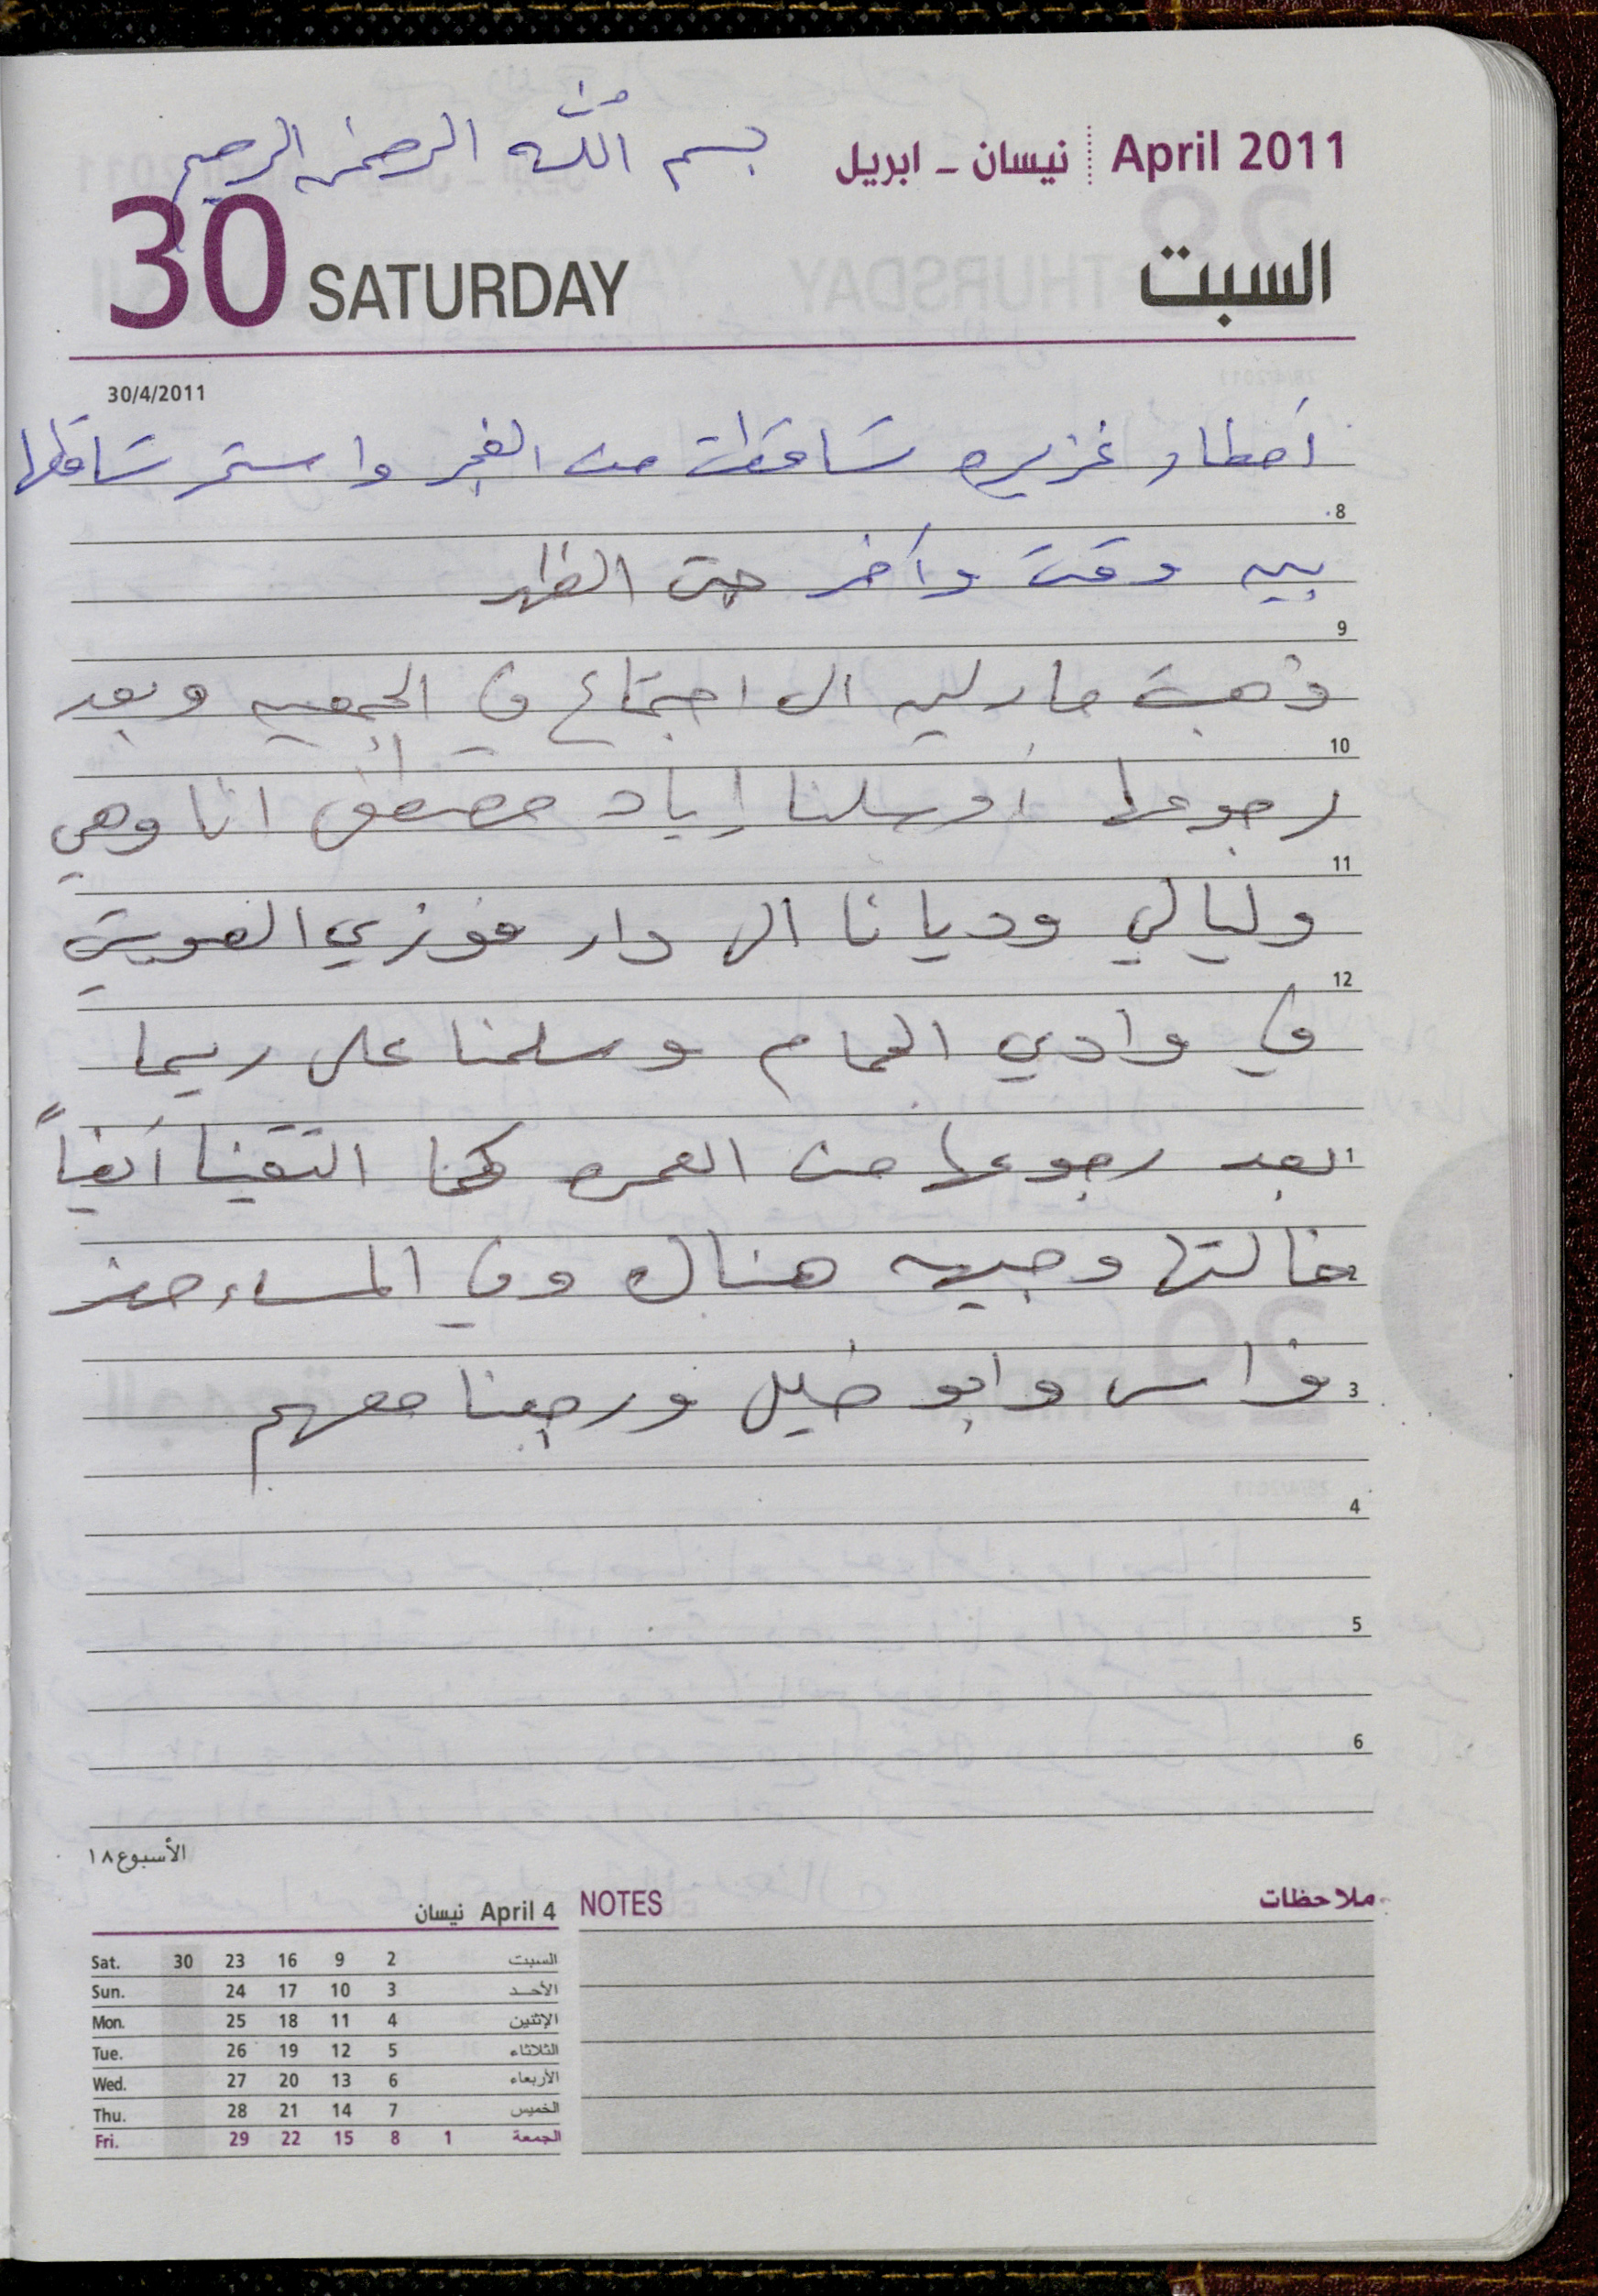 بسم الله الرحمن الرحيم
نيسان - ابريل April 2011
30 SATURDAY السبت
30/4/2011
أمطار غزيره تساقطت من الفجر واستمر تساقطها
8
بين وقت وآخر حتى الظهر
9
ذهبت مارلين الى اجتماع في الجمعيه وبعد
10
رجوعها أوسلنا إياد مصطفى انا وهي
11
وليالي وديانا الى دار فوزي
12
في وادي الحمام وسلمنا على ريما
ابعد رجوعها من العمره كما التقينا أيضاً
خالتها وجيهه هناك وفي المساء حضر
3
فراس وابو خليل ورجعنا معهم
4
5
6
الأسبوع ١٨
April 4 نيسان
Sat. 30 23 16 9 2 السبت
Sun. 24 17 10 3 الأحد
Mon. 25 18 11 4 الإثنين
Tue. 26 19 12 5 الثلاثاء
Wed. 27 20 13 6 الأربعاء
Thu. 28 21 14 7 الخميس
Fri. 29 22 15 8 1 الجمعة
NOTES ملاحظات